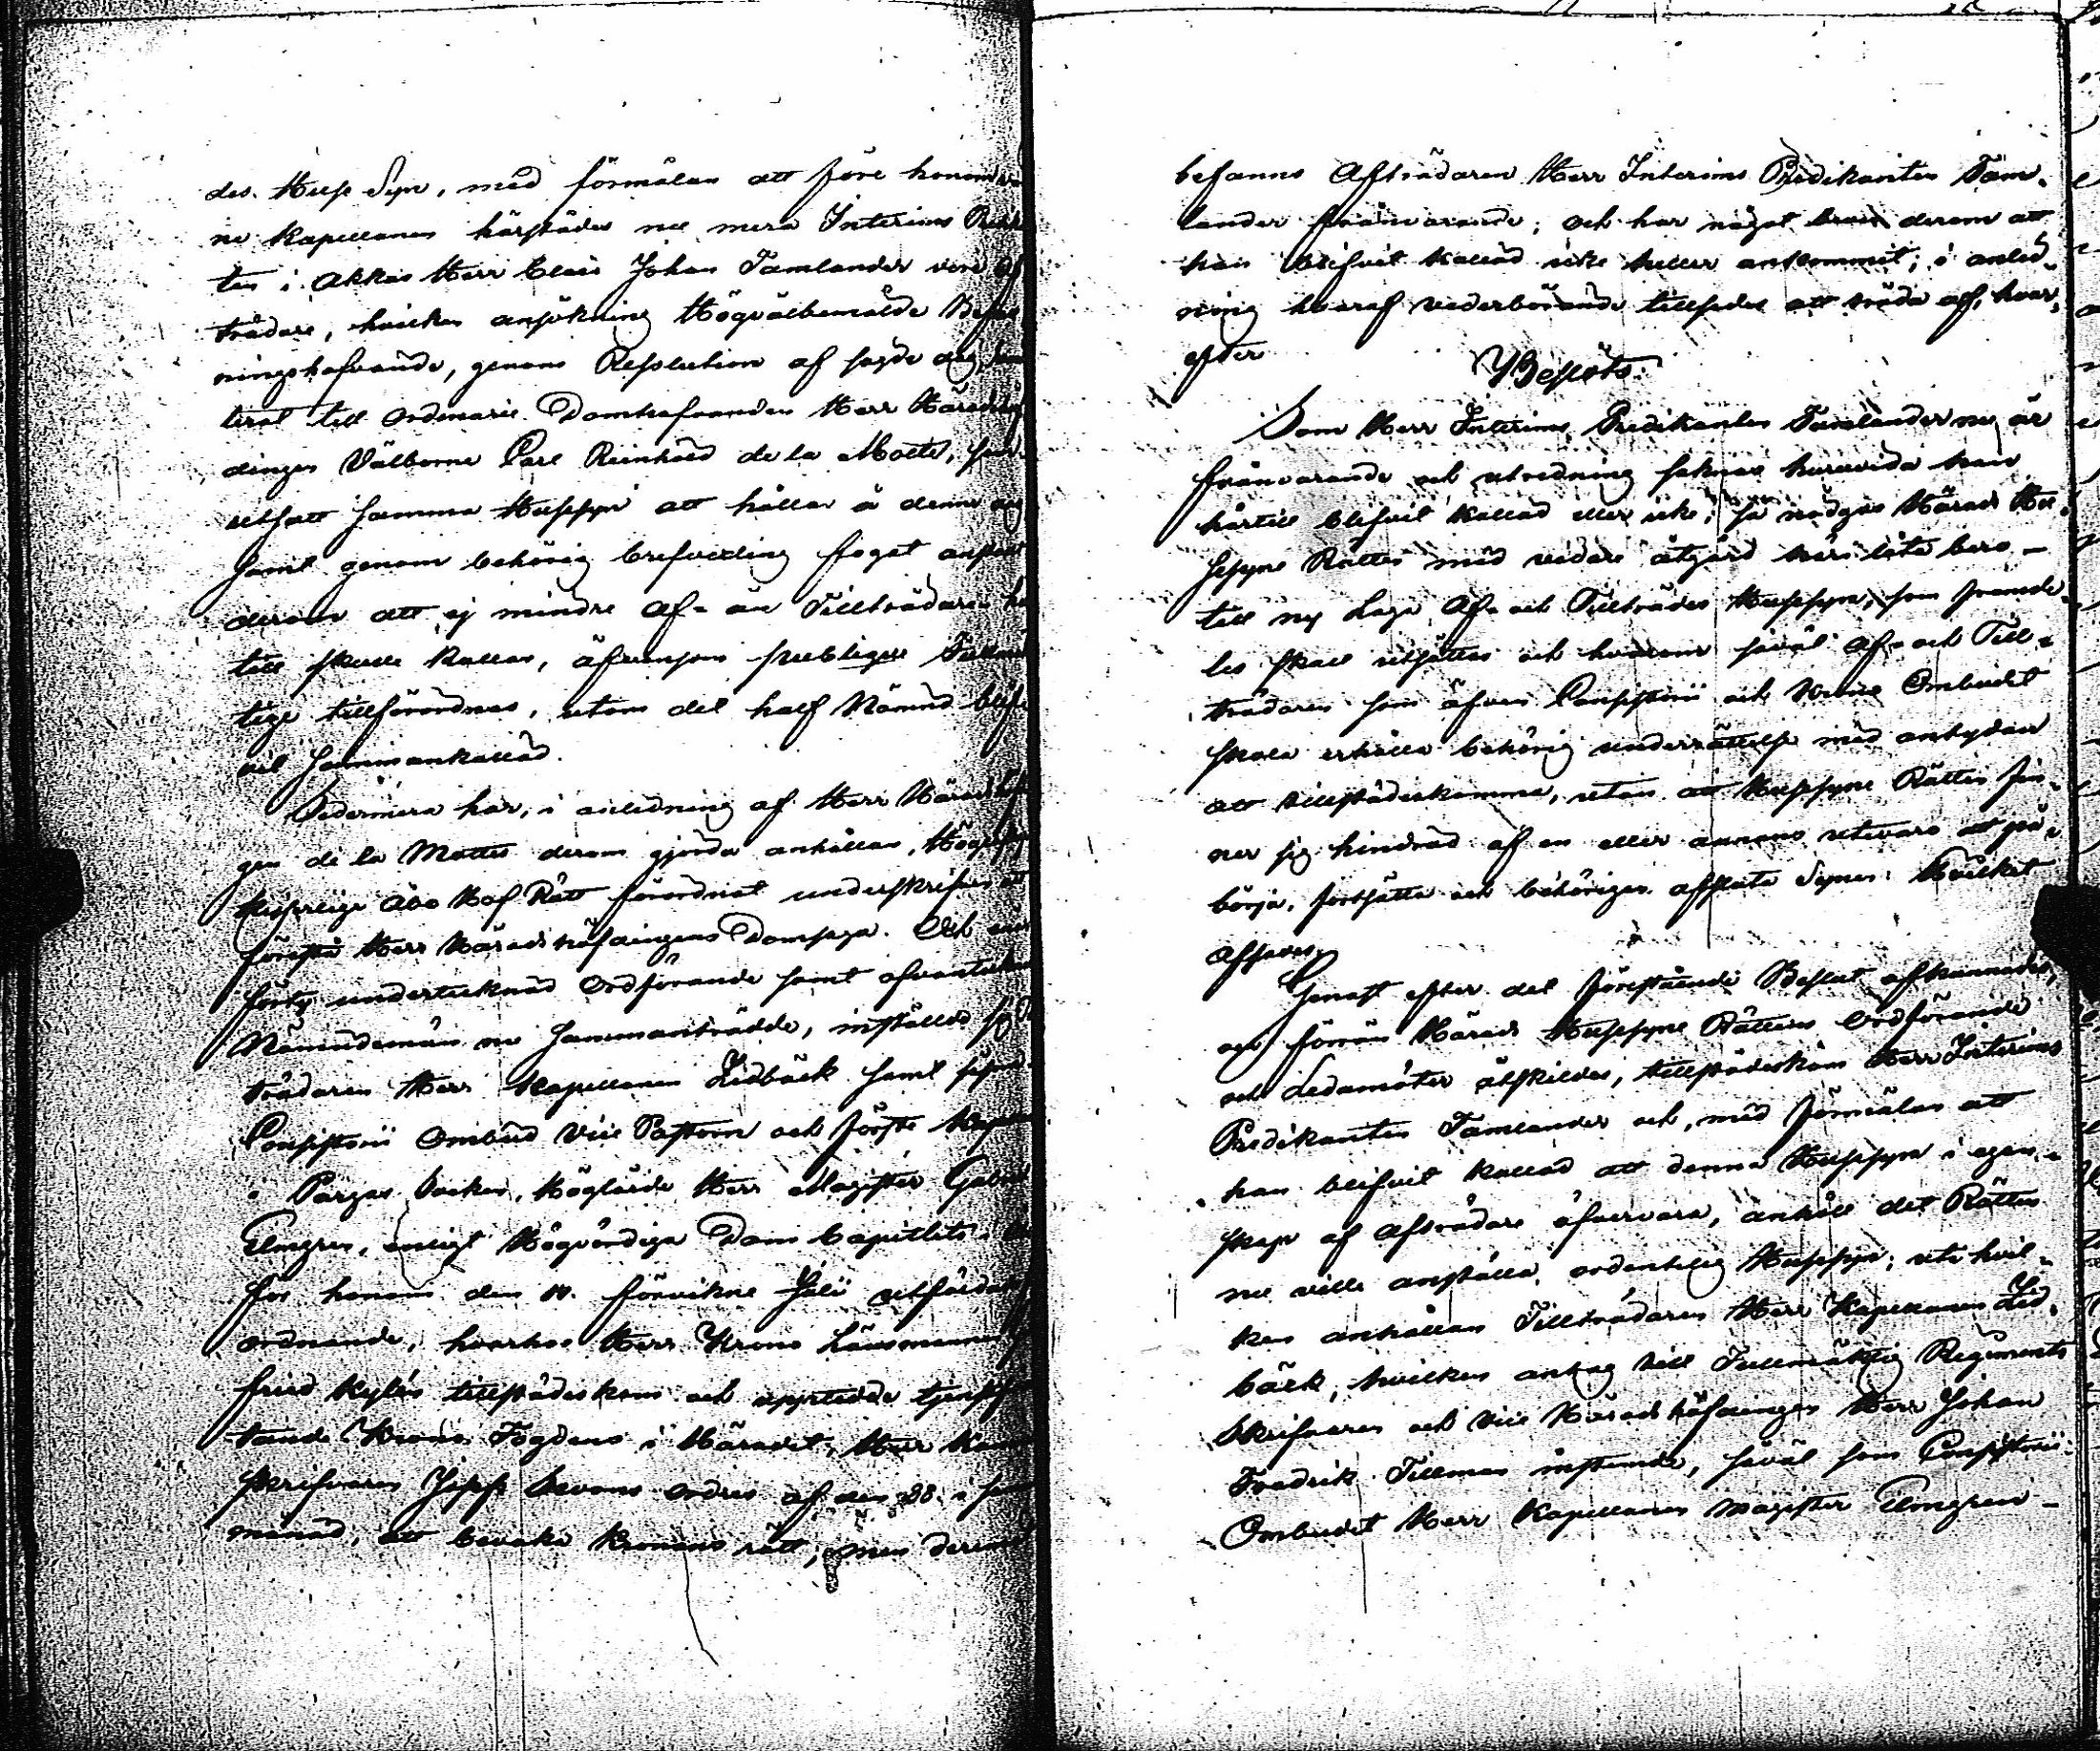 des Huse Syn, med förmälan att före honom
ne Kapellanen härstädes nu mera Interims
ten i Akkas Herr Claes Johan Tamlander vore
trädare, hvilken ansökning Högvälbemälde
ningshafvande, genom Resolution af sagde dag
terat till Ordinarie Domhafvanden Herr
dingen Välborne Carl Reinhold de la Motte, som
utsatt samma Husesyn att hållas å denna dag
samt genom behörig brefvexling fogat anstalt
derom att ej mindre Af- än Tillträdaren
till skulle kallas, äfvensom
tige tillförordnas, utom det half Nämnd blif-
vit sammankallad.
Sedermera har, i anledning af Herr
gen de la Mottes derom gjorda anhållan,
Kejserlige Åbo Hof Rätt förordnat underskrifven att
förestå Herr Häradshöfdingens Domsaga. Och när
förty undertecknad Ordförande samt
Nämndemän nu sammanträdde, inställde sig
trädaren Herr Kapellanen Lidbäck samt såsom
Consistorii Ombud Vice Pastorn och förste
i Pargas Socken, Höglärde Herr Magister
Elmgren, enligt Högvördiga Dom Capitlets
för honom den 10. förvikne Julii utfärdade
ordnande, hvarhos Herr Krono Länsmannen
fried Kylén tillstädeskom och uppteedde
tande Krono Fogdens i Häradet, Herr
skrifvaren ordres af den 28. i
månad, att bevaka Kronans rätt; men
befanns Afträdaren Herr Interims Predikanten Tam-
lander frånvarande; och har något bevis derom att
han blifvit kallad icke heller ankommit; i anled-
ning hvaraf vederbörande tillsades att träda af, hvar-
efter
Beslöts:
Som Herr Interims Predikanten Tamlander nu är
frånvarande och utredning saknas huruvida han
härtill blifvit kallad eller icke; så nödgas Härads Hu-
sesyne Rätten med vidare åtgärd härs låta bero
till ny Laga Af- och Tillträdes Husesyn, som framde-
les skall utsättas och hvarom såväl Af- och Till-
trädaren som äfven Consistorii och Krono Ombudet
skola erhålla behörig underrättelse med antydan
att tillstädeskomma, utan att Husesyne Rätten fin-
ner sig hindrad af en eller annans utevaro att på-
börja, fortsätta och behörigen afsluta Synen. Hvilket
Afsades.
Genast efter det förestående Beslut afkunnades,
och förrän Härads Husesyne Rättens Ordförande
och Ledamöter åtskildes, tillstädeskom Herr Interims
Predikanten Tamlander och, med förmälan att
han blifvit kallad att denna Husesyn i egen-
skap af Afträdare öfvervara, anhöll det Rätten
nu ville anställa ordentelig Husesyn; uti hvil-
ken anhållan Tillträdaren Herr Kapellanen Lid-
bäck, hvilken antog till Fullmäktig Regiments
Skrifvaren och Vice Häradshöfdingen Herr Johan
Fredrik Tillman instämde, såväl som Consistorii
Ombudet Herr Kapellanen Magister Elmgren